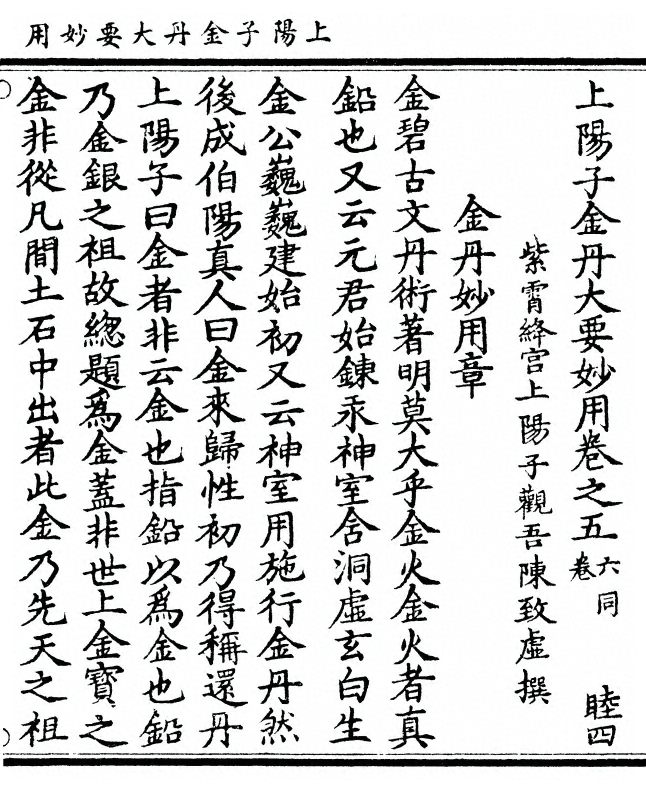 上陽子金丹大要妙用
上陽子金丹大要妙用卷之五 六卷同 睦四
紫霄絳宮上陽子觀吾陳致虛撰
金丹妙用章
金碧古文丹術著明莫大乎金火金火者真
鉛也又云元君始鍊汞神室含洞虛玄白生
金公巍巍建始初又云神室用施行金丹然
後成伯陽真人曰金來歸性初乃得稱還丹
上陽子曰金者非云金也指鉛以為金也鉛
乃金銀之祖故總題為金蓋非世上金寶之
金非從凡間土石中出者此金乃先天之祖